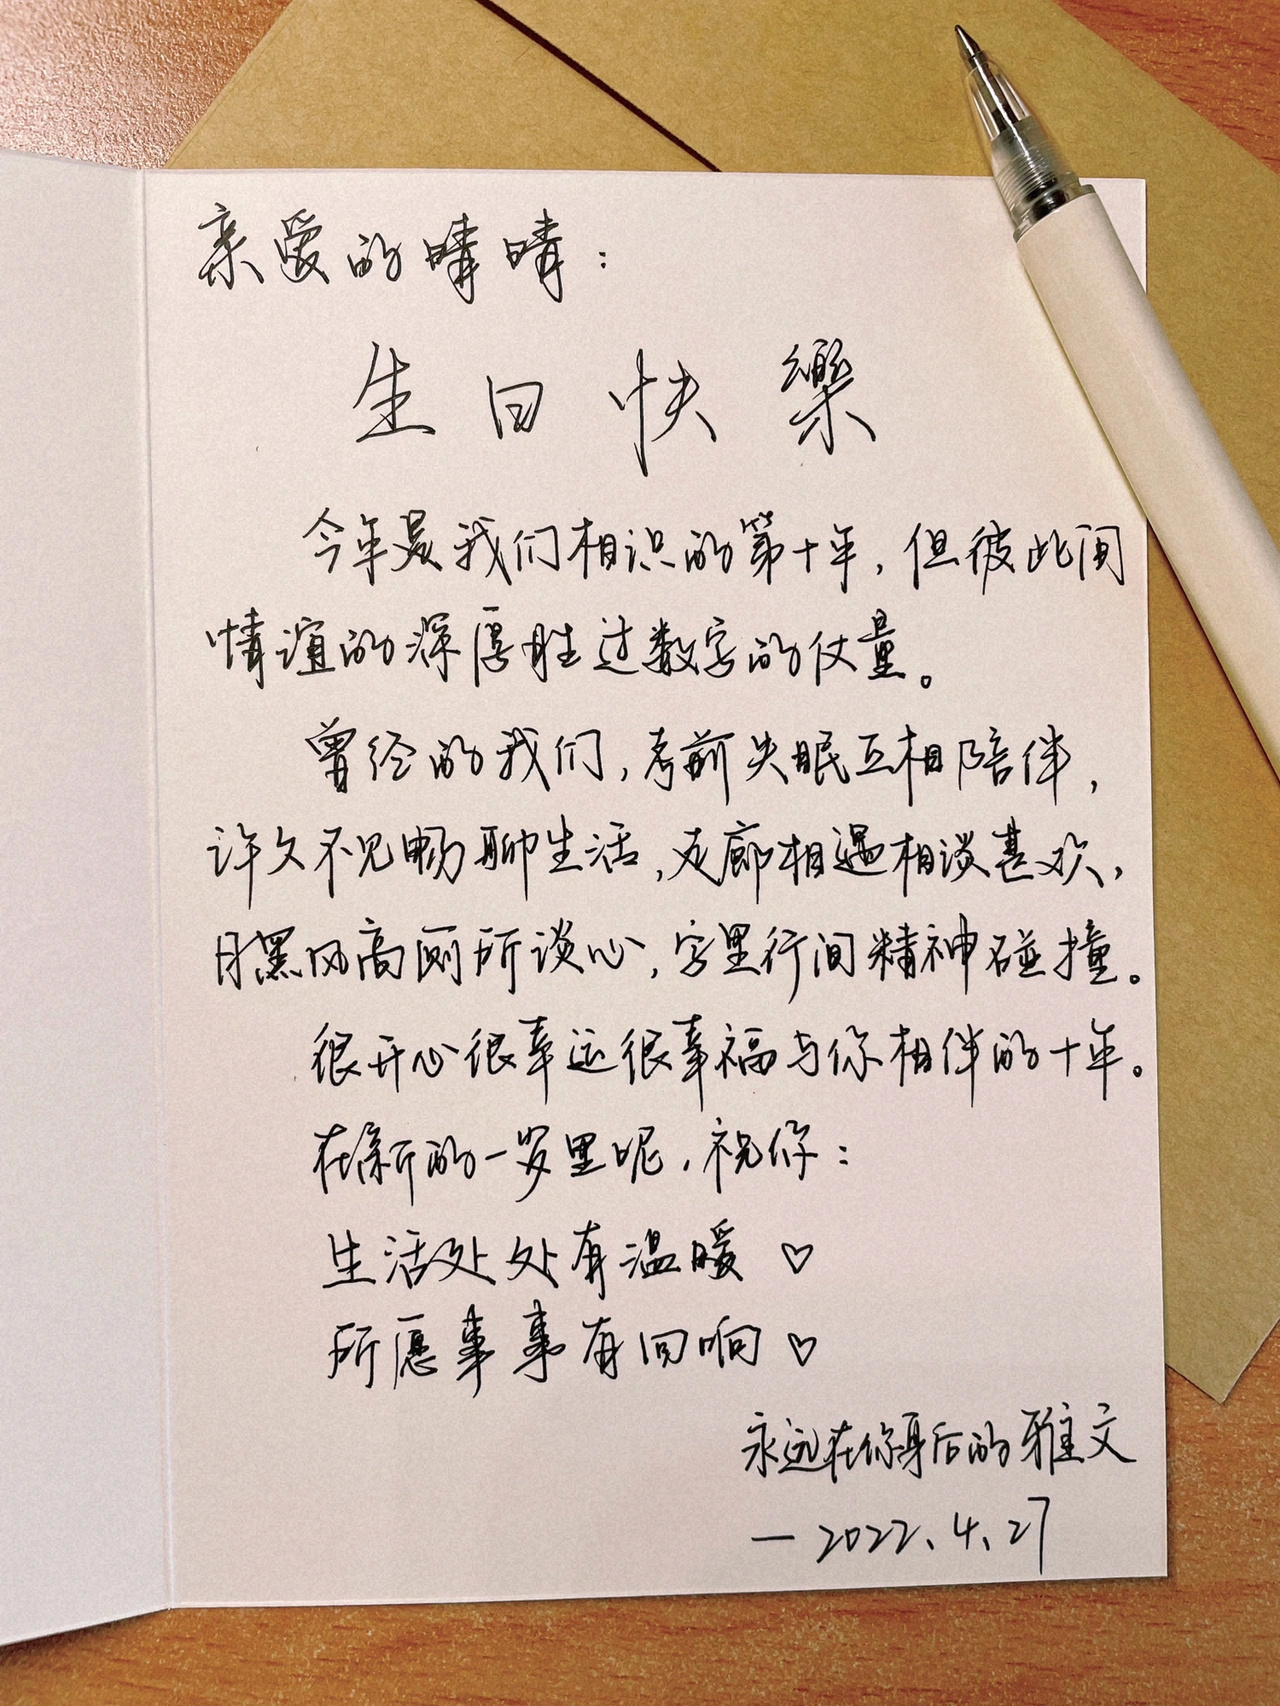 亲爱的晴晴：
生日快樂
今年是我们相识的第十年，但彼此间
情谊的深厚胜过数字的仗量。
曾经的我们，考前失眠互相陪伴，
许久不见畅聊生活，走廊相遇相谈甚欢，
月黑风高厕所谈心，字里行间精神碰撞。
很开心很幸运很幸福与你相伴的十年。
在新的一岁里呢，祝你：
生活处处有温暖♡
所愿事事有回响♡
永远在你身后的雅文
—2022、4、27